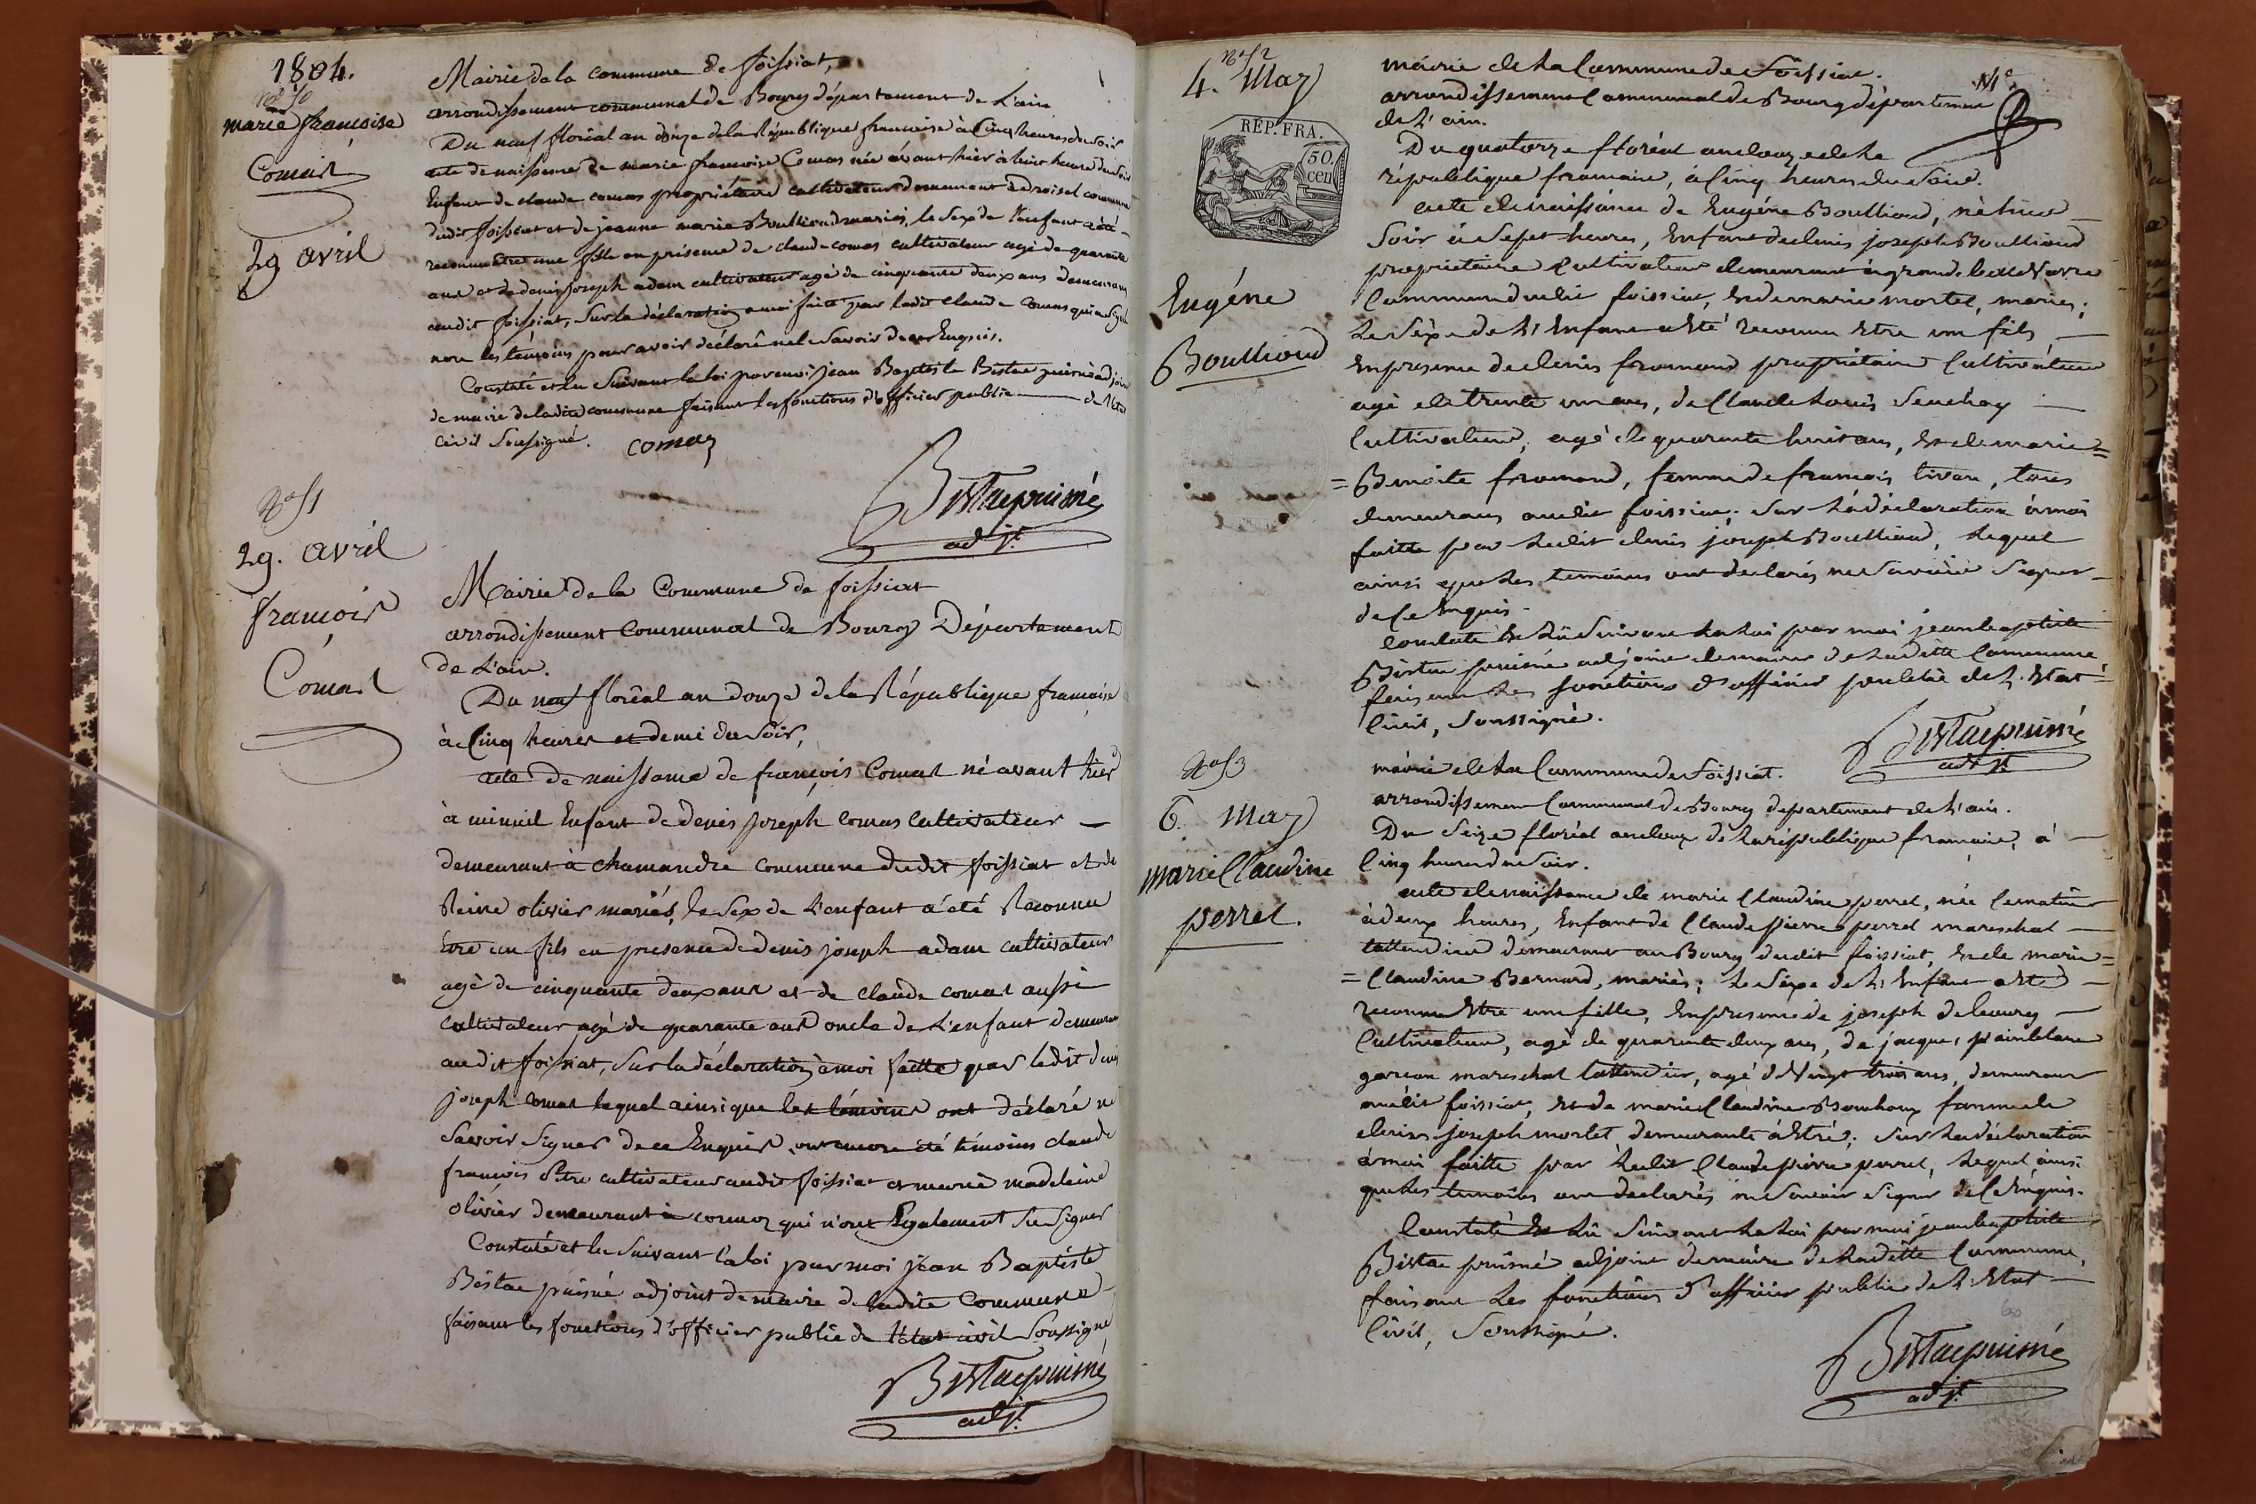 1804.
N° 50
marie françoise
Comas
29 avril
Mairie de la commune de foissiat,
arrondissement communal de Bourg département de L'ain
Du neuf floréal an douze de la République francaise à Cinq heures du soir
acte de naissance de marie francoise Comas née avant hier à huit heure du soir
Enfant de claude comas propriétaire cultivateur demeurant à commune
dudit foissiat et de jeanne marie Boullioud mariés, le Sexe de l'enfant a été
reconnu être une fille en présence de claude comas cultivateur agé de quarante
ans et de denis joseph adam cultivateur agé de cinquante deux ans demeurans
audit foissiat, Sur la déclaration a moi faite par ledit claude Comas qui a Signé
non les témoins pour avoir déclaré ne le Savoir de ce Enquis.
Constaté et lu Suivant la loi par moi jean Baptiste Bistac puisné adjoint
de maire de ladite commune faisant les fonctions d'officier public de l'état
civil Soussigné. comas
Bistac puisné
adjt.
N° 51
29. avril
françois
Comas
Mairie de la Commune de foissiat
arrondissement Communal de Bourg Département
de L'ain.
Du neuf floréal an douze de la République francaise
à Cinq heures et demi du Soir,
acte de naissance de françois Comas né avant hier
à minuit Enfant de denis joseph Comas Cultivateur
demeurant à chamandre commune dudit foissiat et de
Reine olivier mariés, le Sex de L'enfant a été Reconnu
être un fils en presence de denis joseph adam cultivateur
agé de cinquante deux ans et de claude comas aussi
cultivateur agé de quarante ans oncle de L'enfant demeurans
audit foissiat, Sur la déclaration à moi faitte par ledit denis
joseph comas lequel ainsi que les témoins ont déclaré ne
Savoir Signer de ce Enquis, ont encore été témoins claude
françois cultivateur audit foissiat et marie madeleine
olivier demeurant à cormoz qui n'ont Egalement Su Signer
Constaté et lu Suivant la loi par moi jean Baptiste
Bistac puisné adjoint de maire de ladite Commune
faisant les fonctions d'officier public de l'état civil Soussigné
Bistac puisné
adjt.
N° 52
4. May
REP. FRA.
50.
cen
Eugéne
Boullioud
mairie de la Commune de foissiat.
arrondissement Communal de Bourg département
de L'ain.
Du quatorze floréal an douze de la
république francaise, à Cinq heures du Soir.
acte de naissance de Eugéne Boullioud, né hier
Soir à Sept heures, Enfant de denis joseph Boullioud
propriétaire Cultivateur demeurant à
Commune dudit foissiat, Et de marie mortel, mariés;
Le Séxe de L'Enfant a Eté reconnu Etre un fils
En presence de denis fromond propriétaire Cultivateur
agé de trente un ans, de Claude Louis
Cultivateur, agé de quarante huit ans, Et de marie=
=Benoite fromond, femme de francois tivan, tous
demeurans audit foissiat; Sur La déclaration à moi
faitte par Ledit denis joseph Boullioud, Lequel
ainsi que Les temoins ont declarés ne Savoir Signer
de Ce Enquis.
Constaté Et Lû Suivant La Loi par moi jean baptiste
Bistac puisné adjoint de maire de Ladite Commune
faisant Les fonctions d'officier public de L'Etat
Civil, Soussigné.
Bistac puisné
adjt.
N° 53
6. May
marie Claudine
perret.
mairie de La Commune de foissiat.
arrondissement Communal de Bourg departement de L'ain.
Du Seize floréal an douze de La république francaise, à
Cinq heures du Soir.
acte de naissance de marie Claudine perret, née Ce matin
à deux heures, Enfant de Claude pierre perret mareschal
tattendier demeurant au Bourg dudit foissiat, Et de marie=
=Claudine Bernard, mariés; Le Séxe de L'Enfant a Eté
reconnu Etre une fille, En presence de joseph
Cultivateur, agé de quarante deux ans, de jacques painblanc
garcon mareschal tattendier, agé de Vingt trois ans, demeurans
audit foissiat, Et de marie Claudine femme de
denis joseph mortel demeurante à Etrés; Sur La déclaration
à moi faitte par Ledit Claude pierre perret, Lequel ainsi
que Les temoins ont declarés ne Savoir Signer de Ce Enquis.
Constaté Et Lû Suivant La Loi par moi jean baptiste
Bistac puisné adjoint de maire de Ladite Commune,
faisant Les fonctions d'officier public de L'Etat
Civil, Soussigné.
Bistac puisné
adjt.